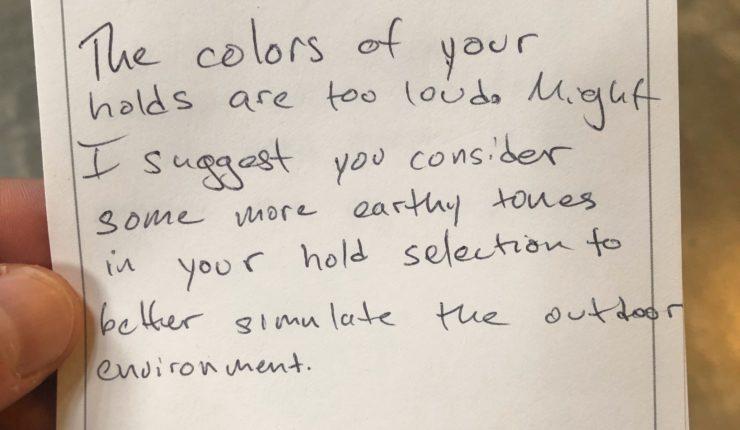 The colors of your
holds are too loud. Might
I suggest you consider
some more earthy tones
in your hold selection to
better simulate the outdoor
environment.